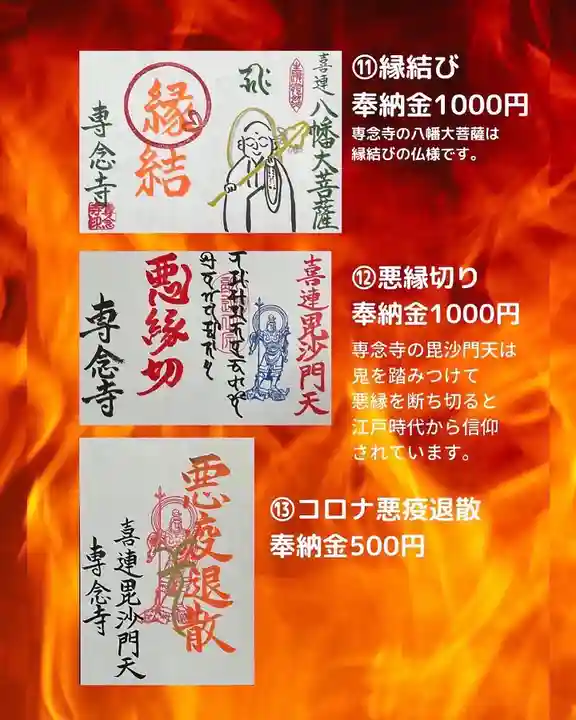 ⑪縁結び
奉納金1000円
専念寺の八幡大菩薩は
縁結びの仏様です。
喜連八幡大菩薩
縁結
専念寺
⑫悪縁切り
奉納金1000円
専念寺の毘沙門天は
鬼を踏みつけて
悪縁を断ち切ると
江戸時代から信仰
されています。
喜連毘沙門天
悪縁切
専念寺
⑬コロナ悪疫退散
奉納金500円
悪疫退散
喜連毘沙門天
専念寺